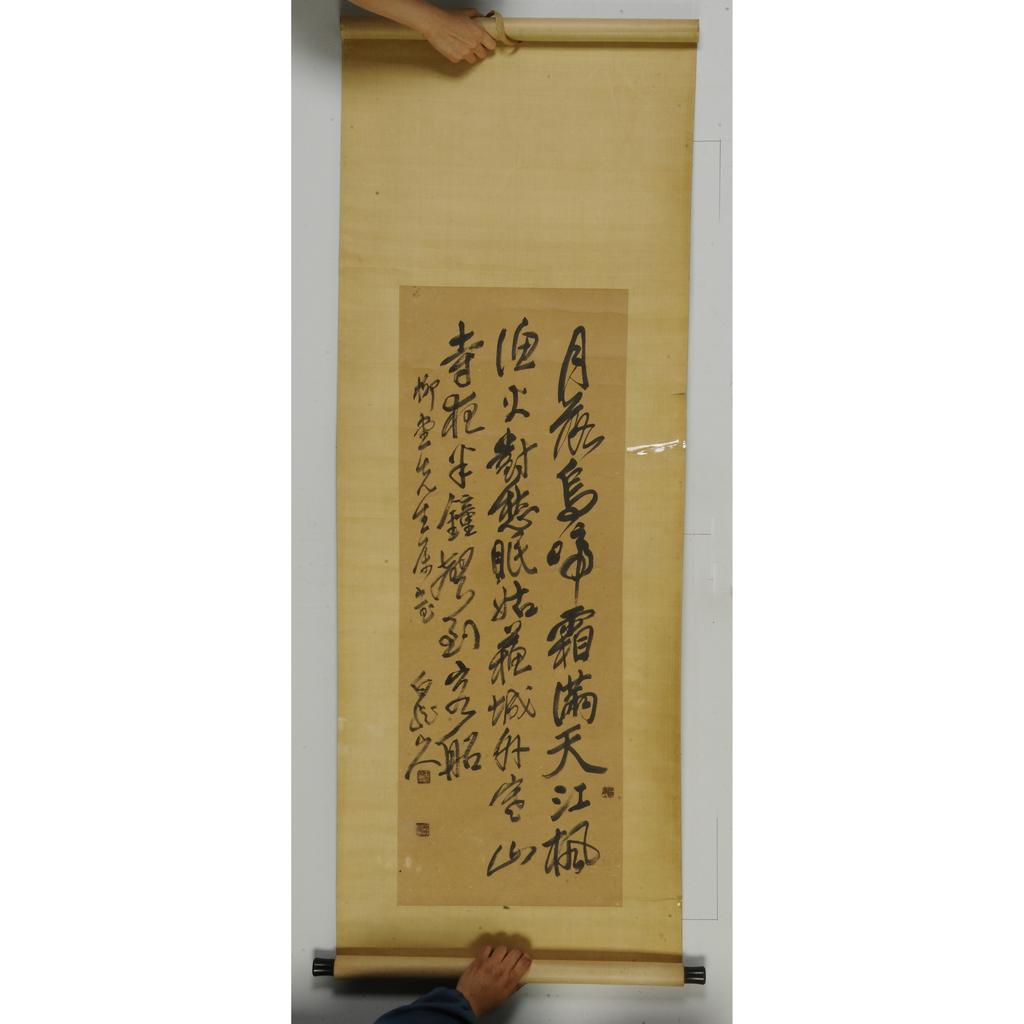 月落烏啼霜滿天江楓
漁火對愁眠姑蘇城外寒山
寺夜半鐘聲到客船
柳堂先生屬
白龍山人